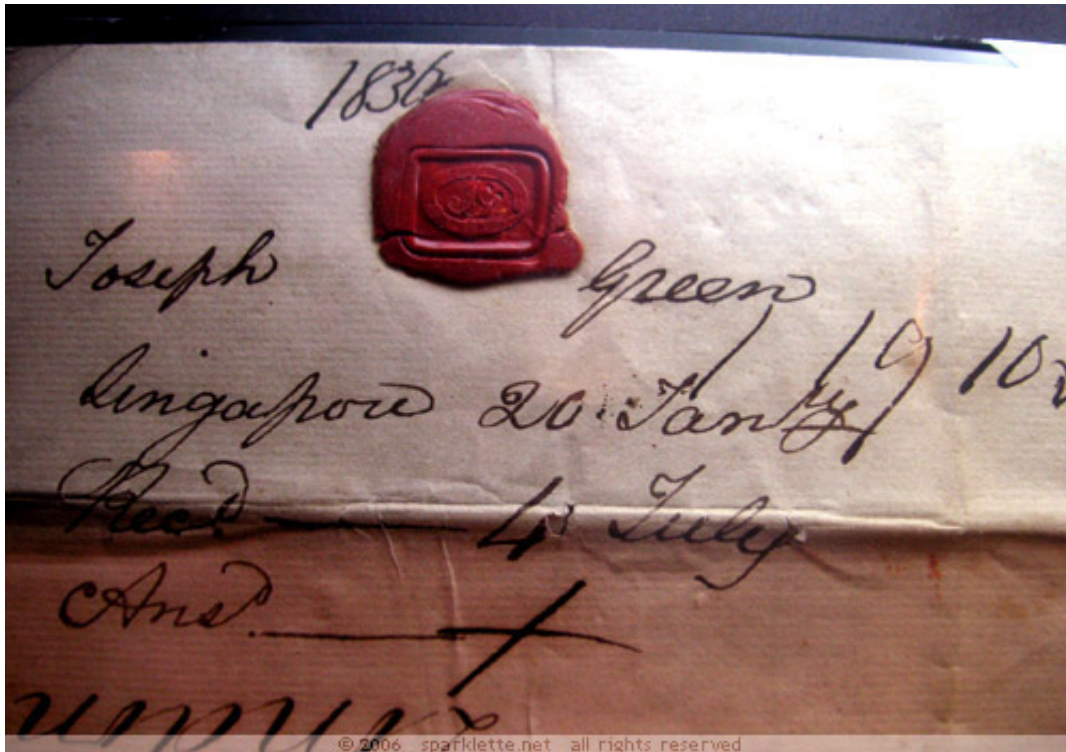 1836
Joseph Green
Singapore 20 Jany
Recd 4 July
Ansd
© 2006 sparklette.net all rights reserved